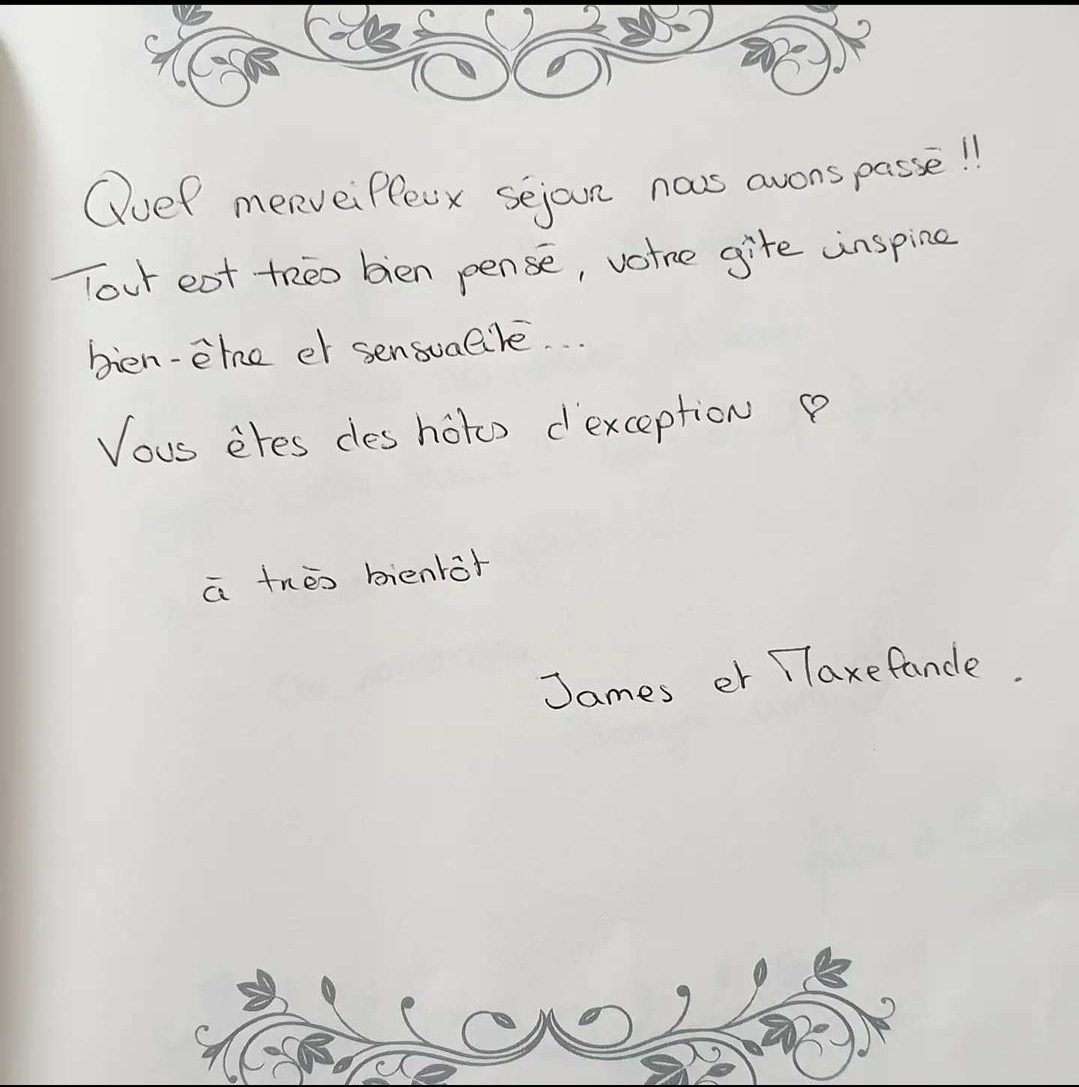 Quel merveilleux séjour nous avons passé !!
Tout est très bien pensé, votre gîte inspire
bien-être et sensualité...
Vous êtes des hôtes d'exception ♡
à très bientôt
James et Maxelande.